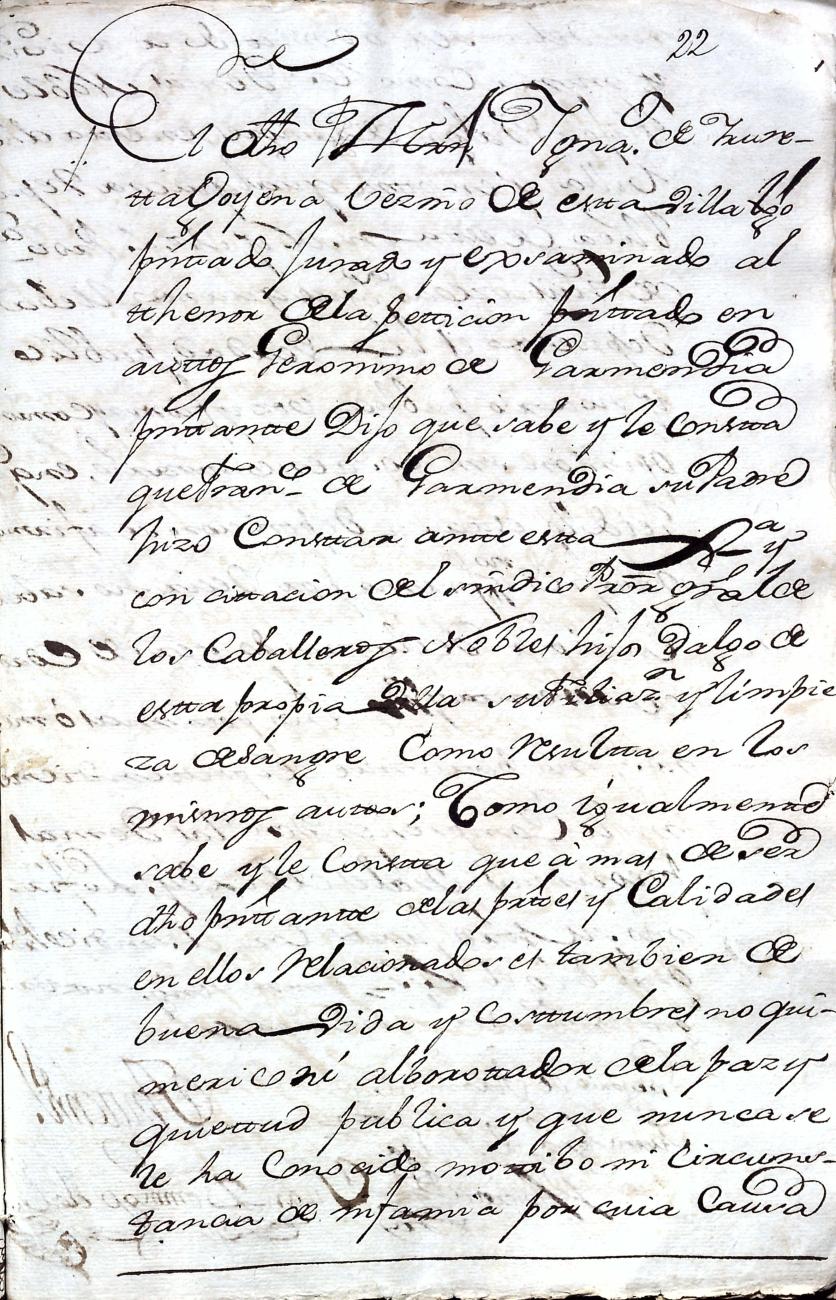 22
El dho Mrn Ygna.º de Zure-
tta Goyena vezino de estta Villa tgo
pnttado Jurado y exsaminado al
thenor de la pettición pnttado en
auttos Geronimo de Garmendia
pnttantte Dijo que sabe y le Constta
que Franco de Garmendia su Padre
hizo Consttar antte estta y
con cittacion del sindico Pror gral de
los Caballeros Nobles hijos dalgo de
estta propia Villa su Filiazn y limpie
za de sangre Como resultta en los
mismos auttos; Como igualmentte
sabe y le Constta que à mas de ser
dho pnttantte de las prttes y Calidades
en ellos relacionados es tambien de
buena Vida y Costtumbres no qui-
merico ni alborottador de la paz y
quiettud publica y que nunca se
le ha Conocido mottibo ni Circuns-
tancia de infamia por cuia Causa